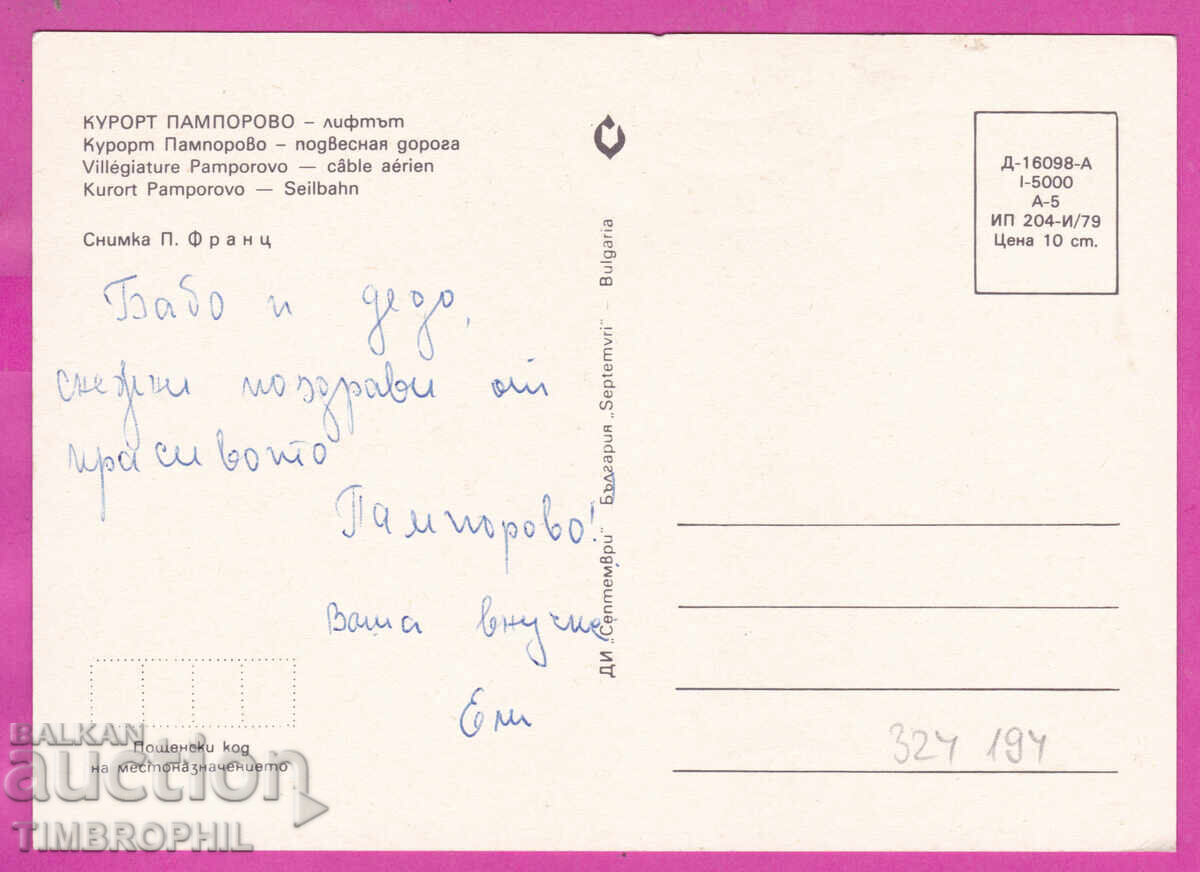 КУРОРТ ПАМПОРОВО – лифтът
Курорт Пампорово – подвесная дорога
Villégiature Pamporovo — câble aérien
Kurort Pamporovo — Seilbahn
Снимка П. Франц
Бабо и дедо,
снежни поздрави от
красивото
Пампорово!
Ваша внучка
Ели
Пощенски код
на местоназначението
ДИ „Септември" България „Septemvri" – Bulgaria
Д-16098-А
I-5000
А-5
ИП 204-И/79
Цена 10 ст.
324 194
BALKAN
auction
TIMBROPHIL